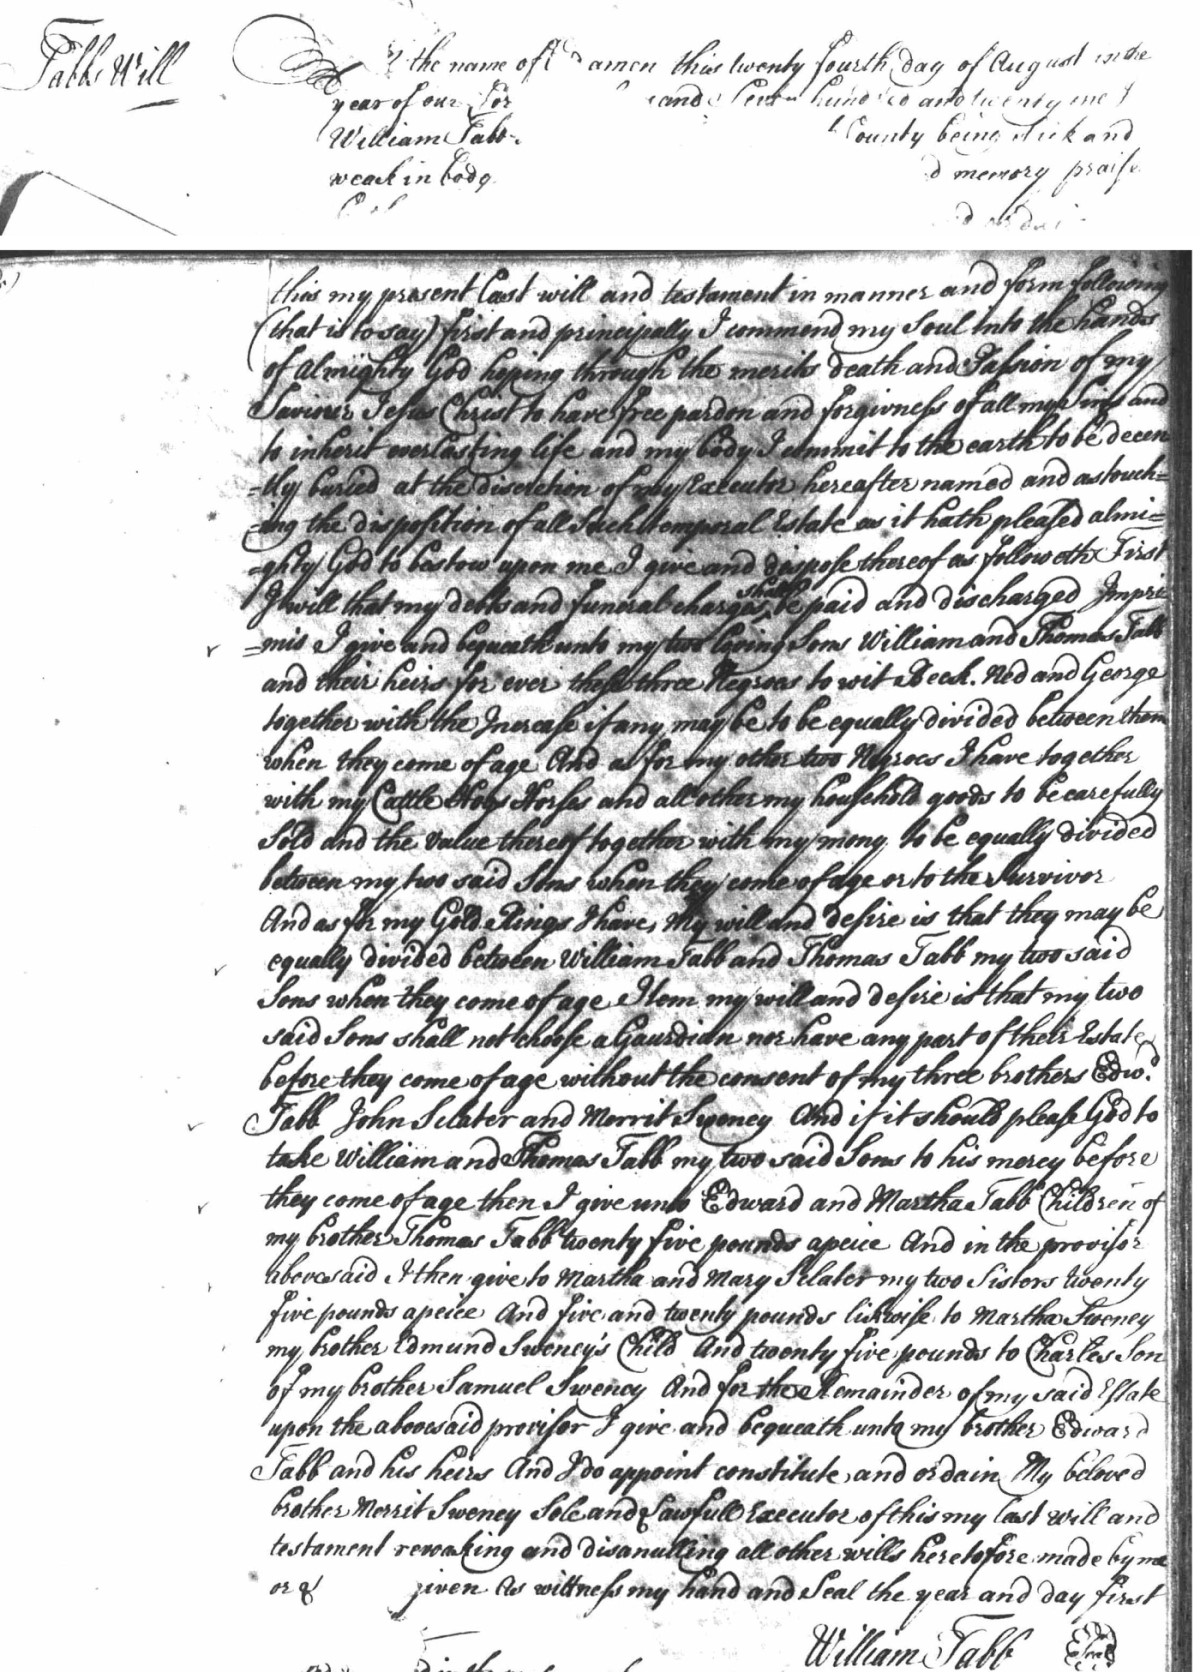 Tabbs Will
the name of amen this twenty fourth day of August in the
year of our hundred and twenty
William Tabb County being sick and
weak in body memory praise
this my present Last will and testament in manner and form following
(that is to say) first and principally I commend my Soul into the hands
of almighty God hoping through the merits death and Passion of my
Saviour Jesus Christ to have free pardon and forgivness of all my Sins and
to inherit everlasting life and my body I commit to the earth to be decen
=tly buried at the discretion of my Executor hereafter named and as touch=
=ing the disposition of all Such temporal Estate as it hath pleased almi=
=ghty God to bestow upon me I give and dispose thereof as followeth First
I will that my debts and funeral charges shall be paid and discharged Impri
=mis I give and bequeath unto my two loving Sons William and Thomas Tabb
and their heirs for ever these three Negroes to wit Beck. Ned and George
together with the Increase if any may be to be equally divided between them
when they come of age And as for my other two Negroes I have together
with my Cattle Hogs Horses and all other my household goods to be carefully
Sold and the Value thereof together with my mony to be equally divided
between my two said Sons when they come of age or to the Survivor
And as for my Gold Rings I have, My will and desire is that they may be
equally divided between William Tabb and Thomas Tabb my two said
Sons when they come of age Item my will and desire is that my two
said Sons shall not choose a Gaurdian nor have any part of their Estate
before they come of age without the consent of my three brothers Edwd.
Tabb John Sclater and Merrit Sweney And if it should please God to
take William and Thomas Tabb my two said Sons to his mercy before
they come of age then I give unto Edward and Martha Tabb Children of
my brother Thomas Tabb twenty five pounds apeice And in the provisor
abovesaid I then give to Martha and Mary Sclater my two Sisters twenty
five pounds apeice And five and twenty pounds likwise to Martha Sweney
my brother Edmund Sweney's Child And twenty five pounds to Charles Son
of my brother Samuel Sweney And for the Remainder of my said Estate
upon the abovesaid provisor I give and bequeath unto my brother Edward
Tabb and his heirs And I do appoint constitute and ordain My beloved
brother Merrit Sweney Sole and Lawfull Executor of this my last will and
testament revoaking and disanulling all other wills heretofore made by me
or given As wittness my hand and Seal the year and day first
William Tabb Seal